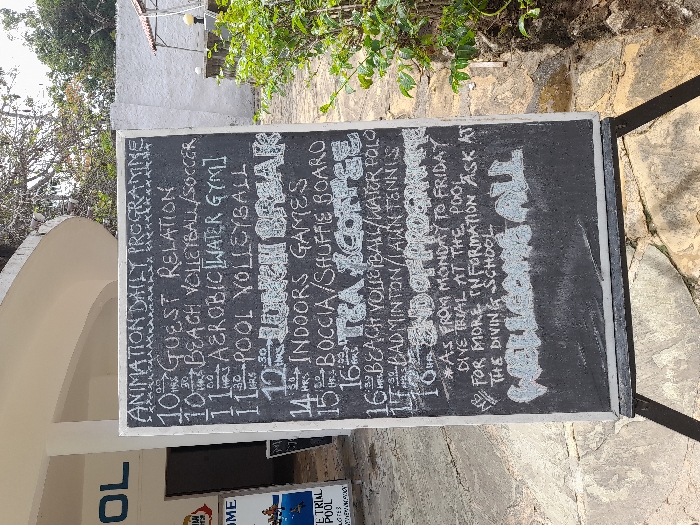 ANIMATION DAILY PROGRAMME
10:00 HRS → GUEST RELATION
10:30 HRS → BEACH VOLLEYBALL/SOCCER
11:00 HRS → AEROBIC [WATER GYM]
11:30 HRS → POOL VOLLEYBALL
12:30 HRS → LUNCH BREAK
14:30 HRS → INDOORS GAMES
15:00 HRS → BOCCIA/SHUFFE BOARD
16:00 HRS → TEA & COFFEE
16:30 HRS → BEACH VOLLEYBALL/WATER POLO
BADMINTON/LAWN TENNIS
18:00 HRS END OF PROGRAMME
* AS FROM MONDAY TO FRIDAY
DIVE TRIAL AT THE POOL
FOR MORE INFORMATION ASK AT
THE DIVING SCHOOL
WELCOME ALL
OL
OME
E TRIAL
POOL